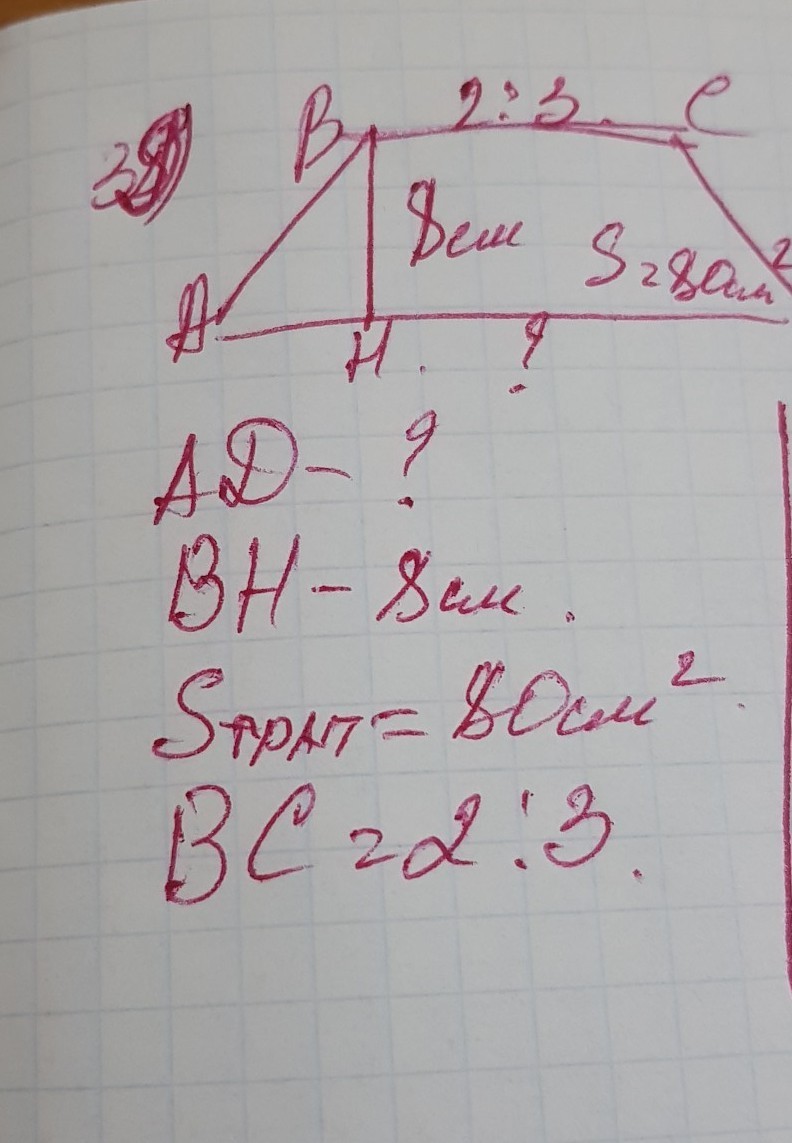 3)
B 2:3. C
8см
S=80см²
A
H. ?
AD- ?
BH - 8см.
Sтрап = 80см².
BC = 2:3.